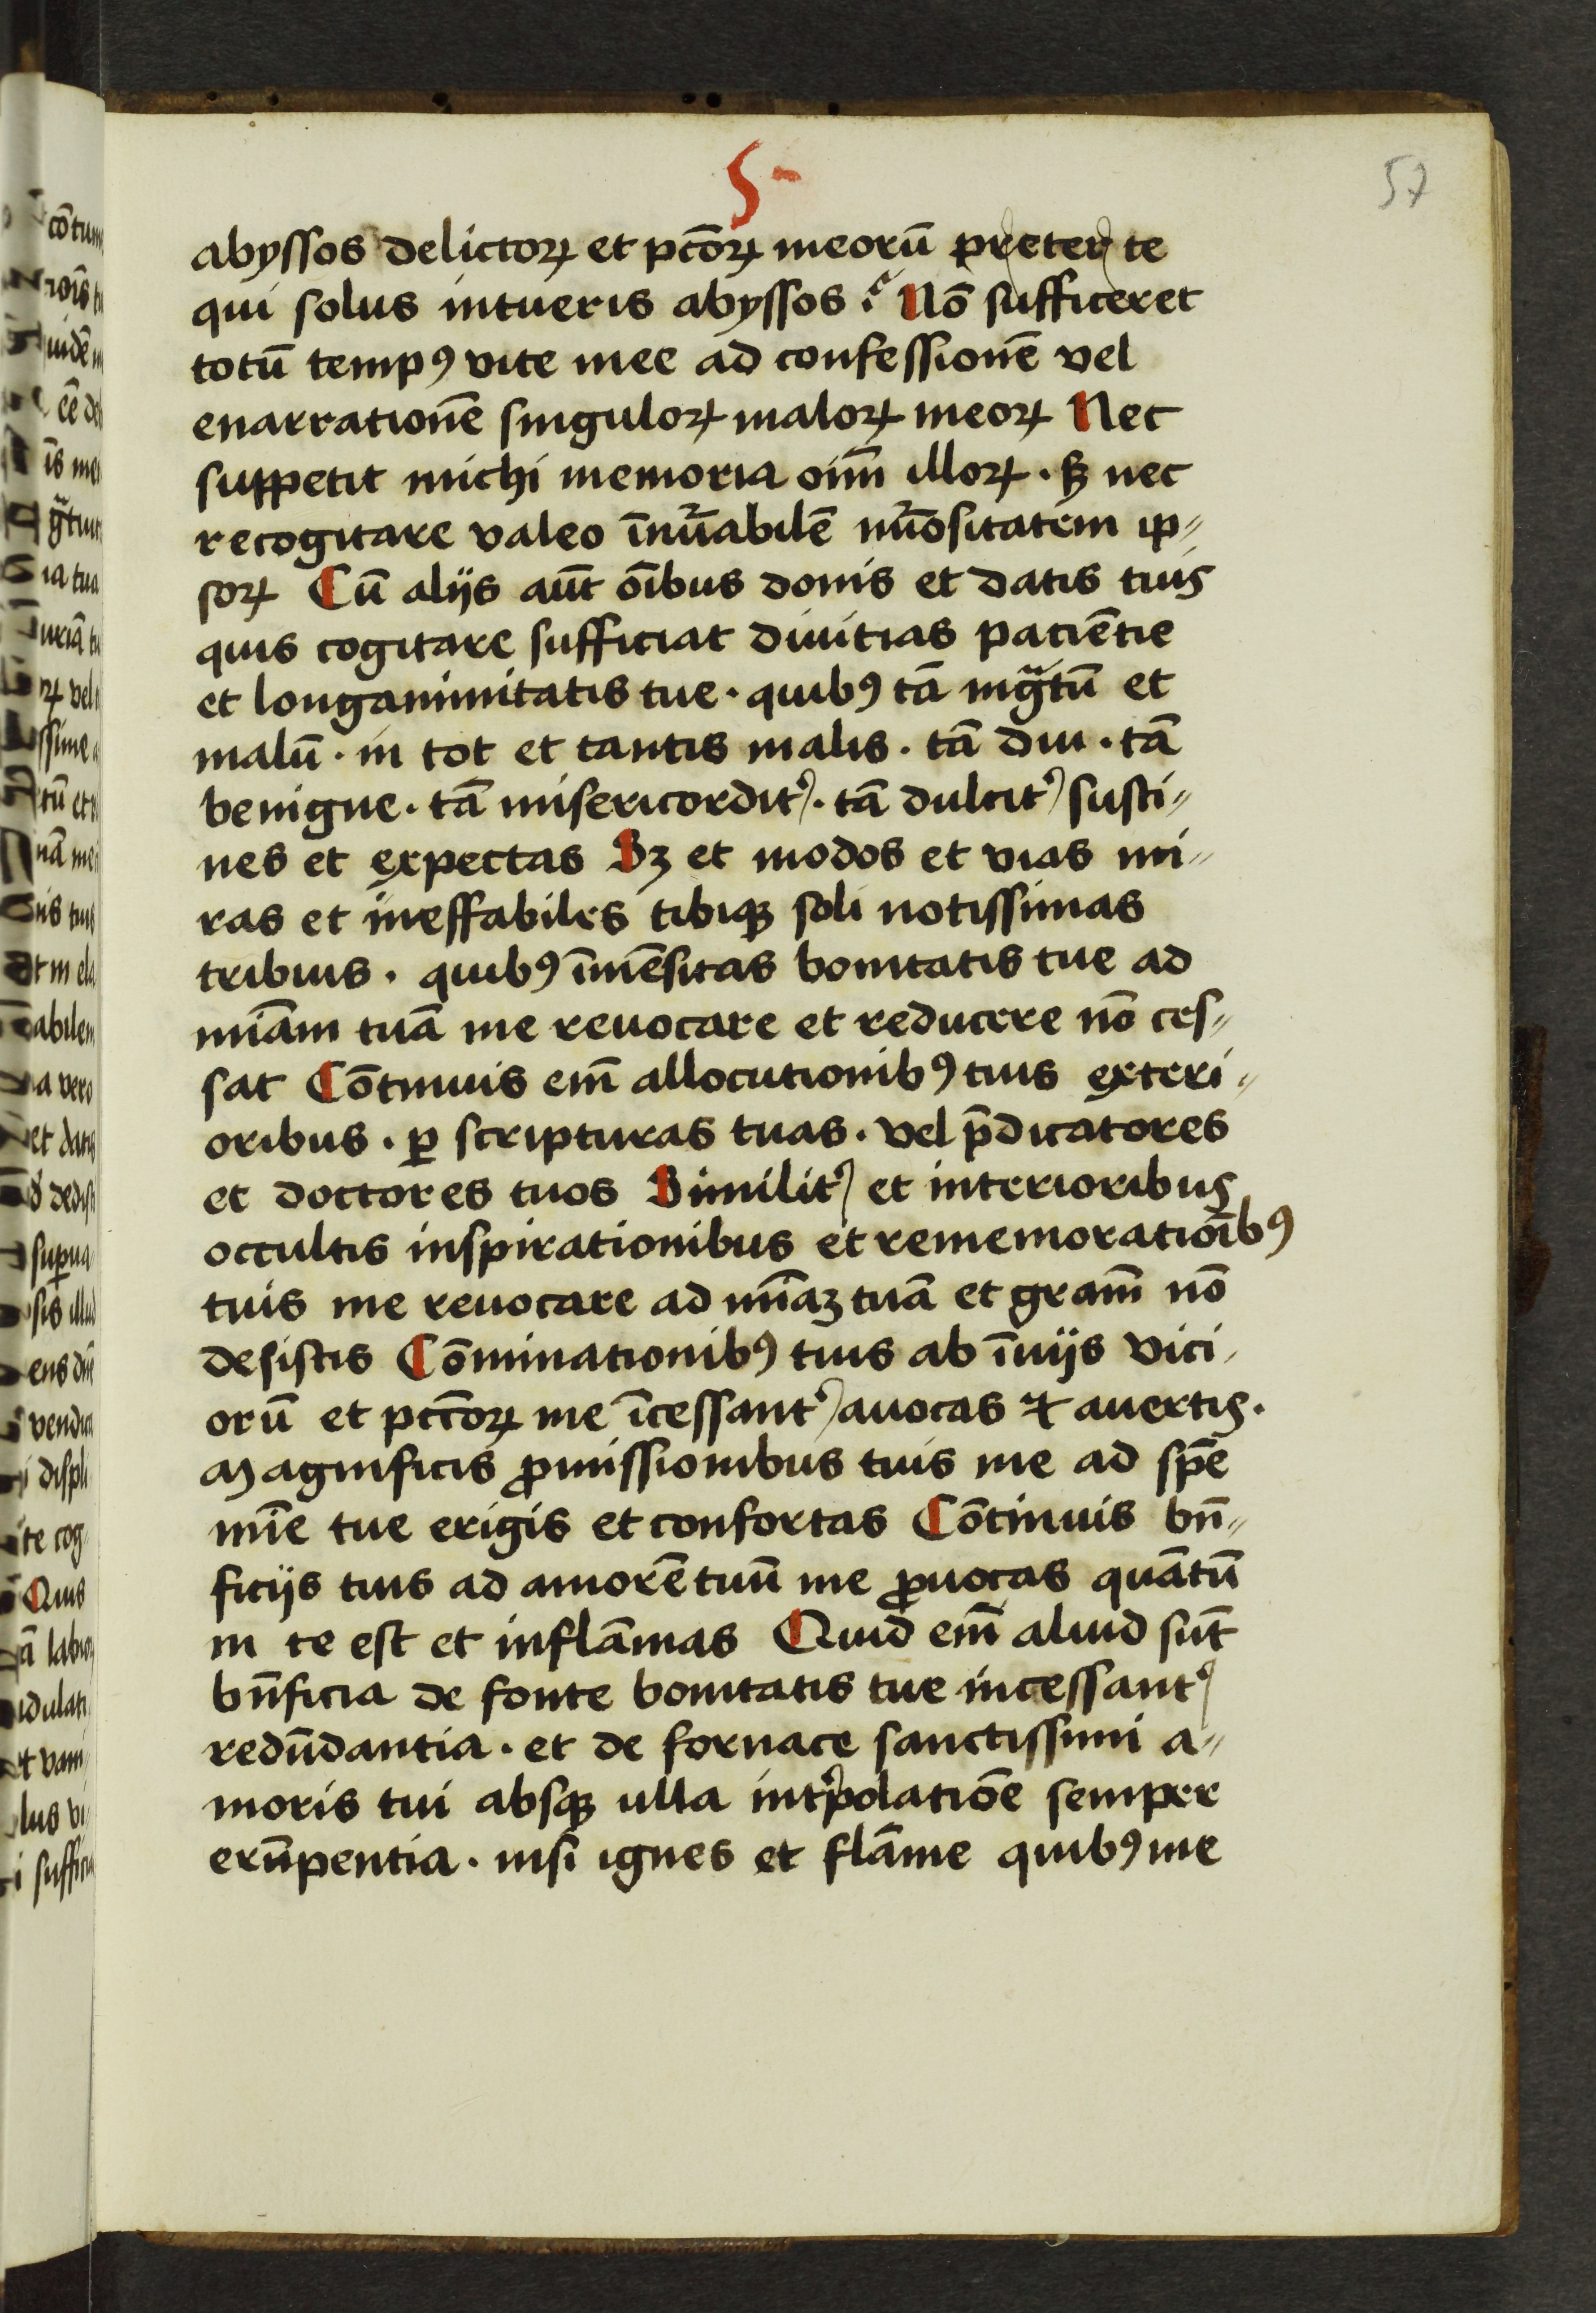 5
57
abyssos delictoꝝ et pct̄oꝝ meorū preter te
qui solus intueris abyssos ? Nō sufficeret
totū tempꝰ vite mee ad confessionē vel
enarrationē singuloꝝ maloꝝ meoꝝ Nec
suppetit michi memoria oīm̄ illoꝝ . sꝫ nec
recogitare valeo īnūabilē nūositatem ip⸗
soꝝ Cū alijs aūt ōibus donis et datis tuis
quis cogitare sufficiat diuitias patiētie
et longanimitatis tue . quibꝰ tā ingᷓtū et
malū . in tot et tantis malis . tā diu . tā
benigne . tā misericordit᷒ . tā dulcit᷒ susti⸗
nes et expectas Sꝫ et modos et vias mi⸗
ras et ineffabiles tibiqꝫ soli notissimas
tribuis . quibꝰ īmēsitas bonitatis tue ad
miāam tuā me reuocare et reducere nō ces⸗
sat Cōtinuis em̄ allocutionibꝰ tuis exteri⸗
oribus . ꝑ scripturas tuas . vel p̄dicatores
et doctores tuos Similit᷒ et interioribus
occultis inspirationibus et rememoratiōibꝰ
tuis me reuocare ad mīaꝫ tuā et gram̄ nō
desistis Cōminationibꝰ tuis ab īuijs vici⸗
orū et pcc̄oꝝ me īcessant᷒ auocas ⁊ auertis .
Magnificis ꝓmissionibus tuis me ad spē
mīe tue erigis et confortas Cōtinuis bn̄⸗
ficijs tuis ad amorē tuū me ꝓuocas quātū
in te est et inflāmas Quid em̄ aliud sūt
bn̄ficia de fonte bonitatis tue incessant᷒
redūdantia . et de fornace sanctissimi a⸗
moris tui absqꝫ ulla int᷒polatiōe semper
erūpentia . nisi ignes et flāme quibꝰ me